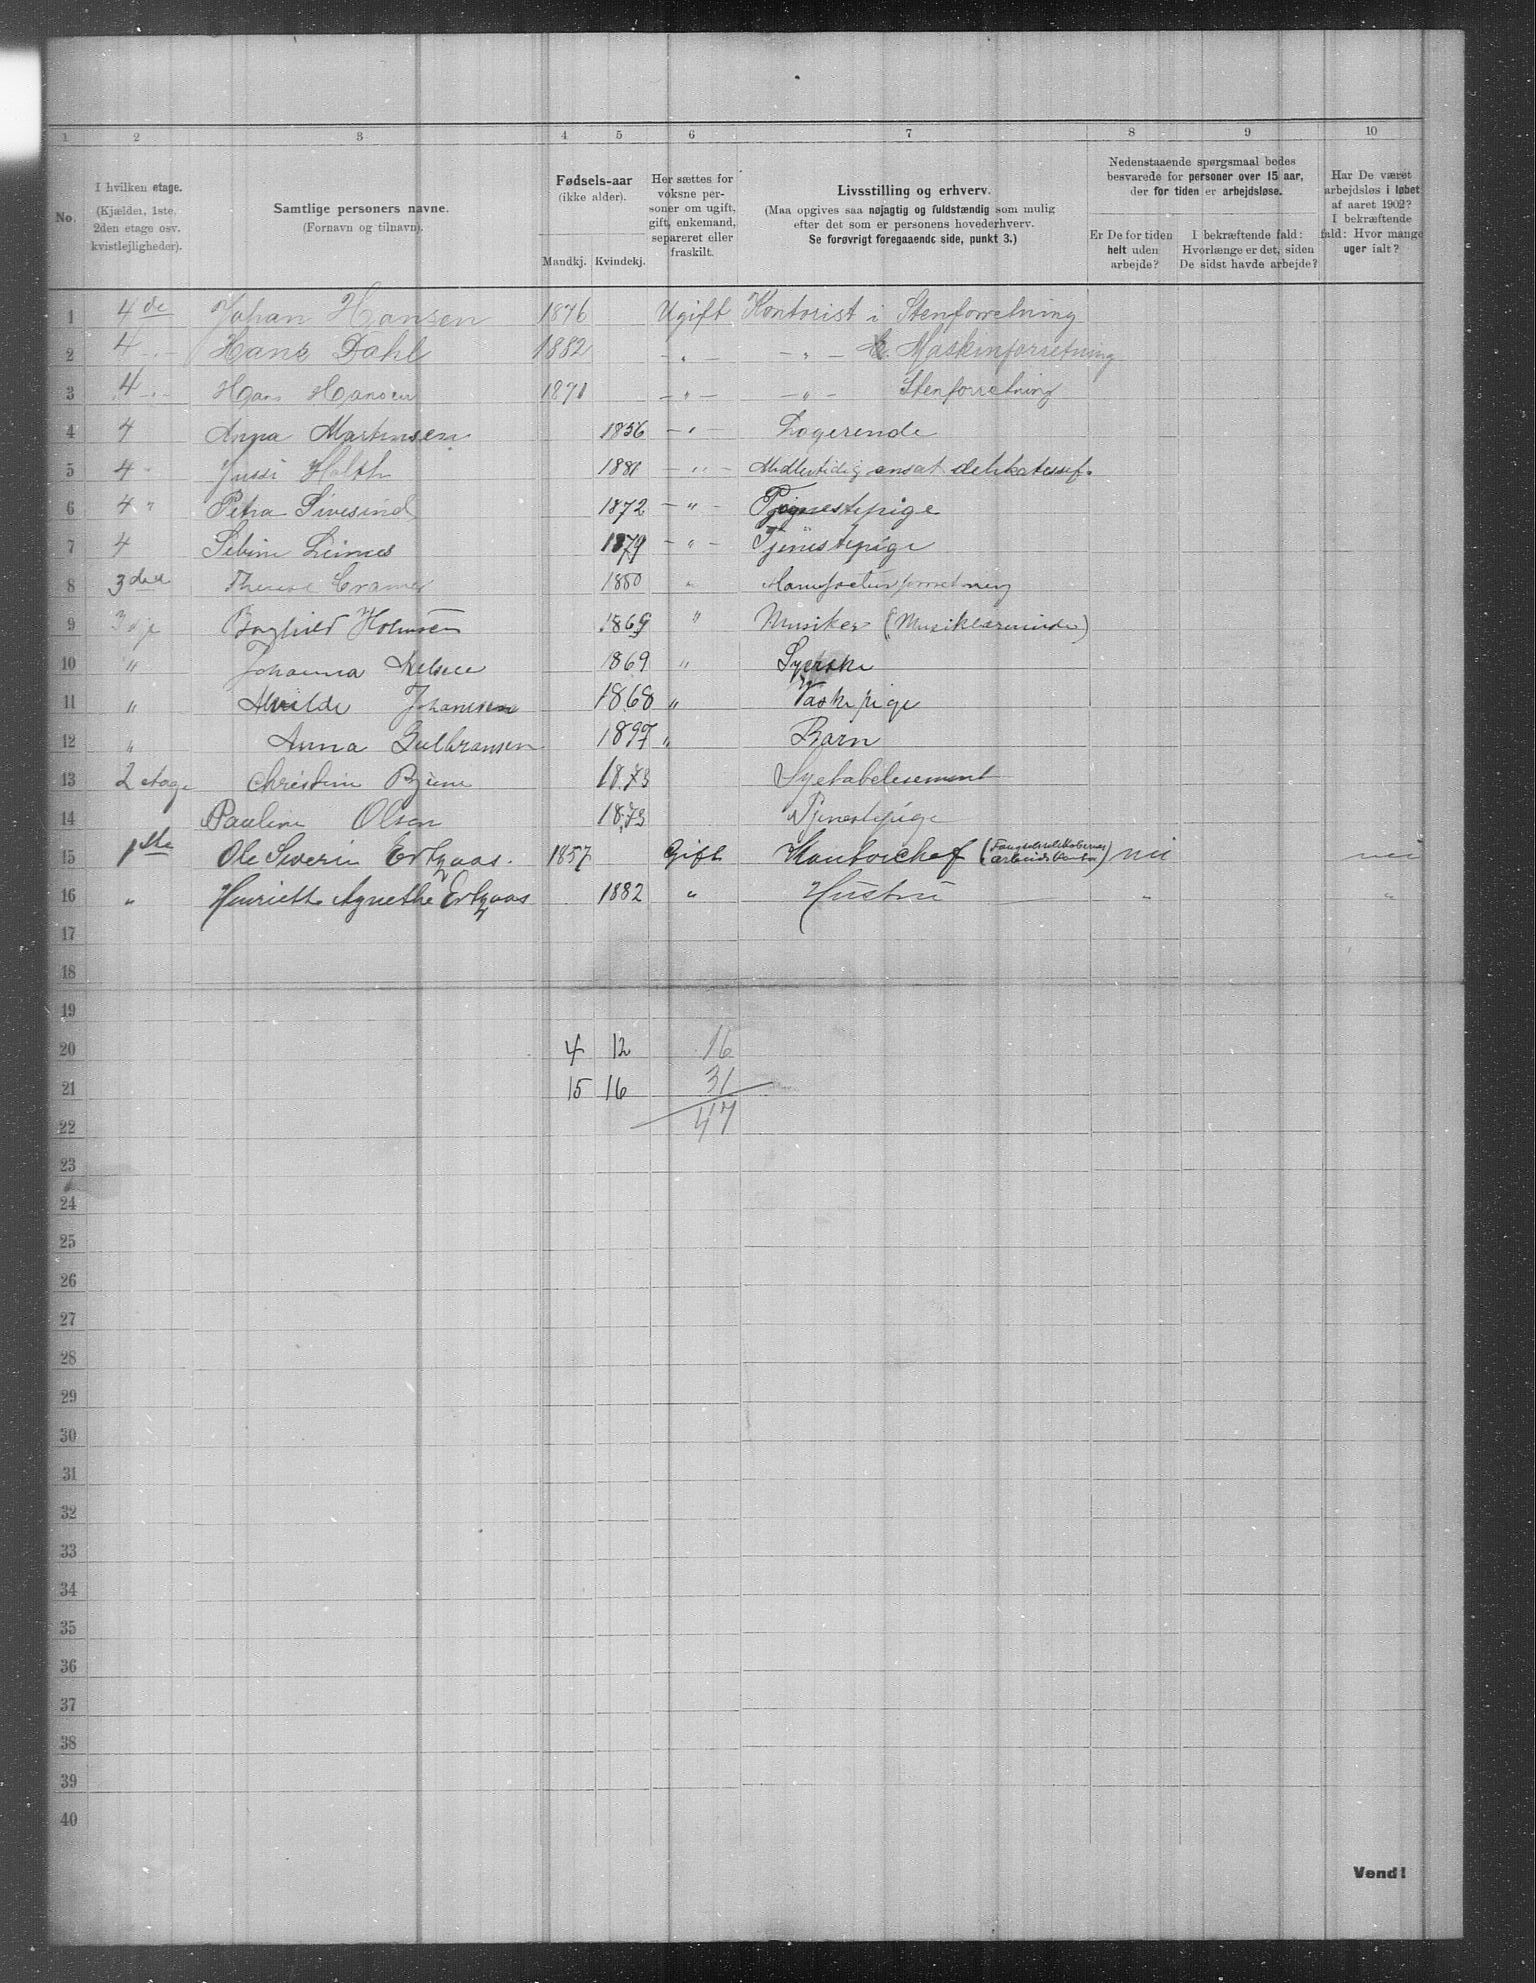 1 2 3 4 5 6 7 8 9 10
No.
I hvilken etage.
(Kjælder, 1ste, 2den etage osv. kvistlejligheder).
Samtlige personers navne.
(Fornavn og tilnavn).
Fødsels-aar
(ikke alder).
Mandkj. Kvindekj.
Her sættes for voksne personer om ugift, gift, enkemand, separeret eller fraskilt.
Livsstilling og erhverv.
(Maa opgives saa nøjagtig og fuldstændig som mulig efter det som er personens hovederhverv.
Se forøvrigt foregaaende side, punkt 3.)
Nedenstaaende spørgsmaal bedes besvarede for personer over 15 aar, der for tiden er arbejdsløse.
Er De for tiden helt uden arbejde?
I bekræftende fald: Hvorlænge er det, siden De sidst havde arbejde?
Har De været arbejdsløs i løbet af aaret 1902? I bekræftende fald: Hvor mange uger ialt?
1 4de Johan Hansen 1876 Ugift Kontorist i Stenforretning
2 4 -"- Hans Dahl 1882 -"- -"- Maskinforretning
3 4 -"- Hans Hansen 1871 -"- -"- Stenforretning
4 4 Anna Martinsen 1856 -"- Logerende
5 4 " Jussi Holth 1881 -"- Midlertidig ansat delikatessef.
6 4 " Petra Sivesind 1872 -"- Tjenestepige
7 4 1879 -"- Tjenestepige
8 3die Therese Cramer 1880 " Manufacturforretning
9 3dje Borghild Holmsen 1869 " Musiker (Musiklærerinde)
10 " Johanna Nelsen 1869 " Syerske
11 " Alvilde Johansen 1868 " Vaskepige
12 " Anna Gulbransen 1897 " Barn
13 2 etage Christine Bjune 1873 Syetablissement
14 Pauline Olsen 1873 Tjenestepige
15 1ste Ole Severin Ertzaas. 1857 Gift Kontorchef (Fængselsselskabernes arbeidskontor) nei nei
16 " Henriette Agnethe Ertzaas 1882 " Hustru " "
17
18
19
20 4 12 16
21 15 16 31
22 47
23
24
25
26
27
28
29
30
31
32
33
34
35
36
37
38
39
40
Vend!